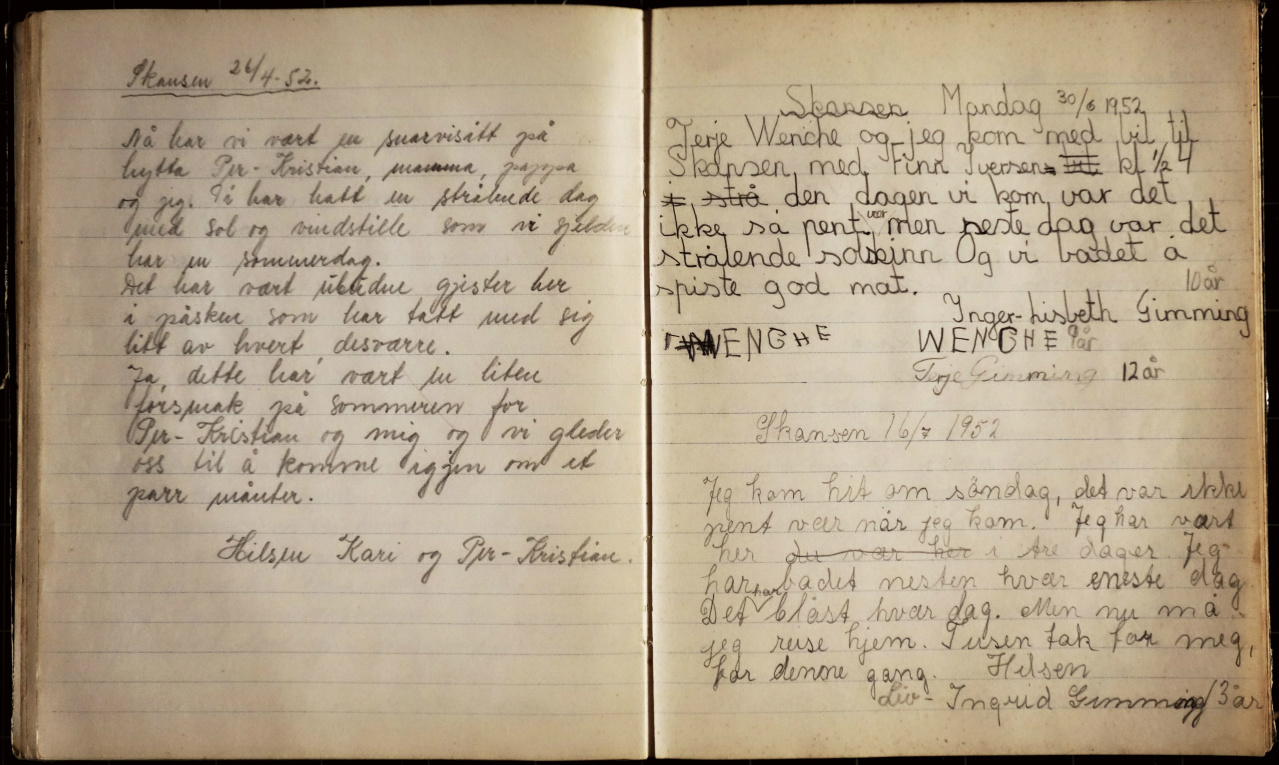 Skansen 26/4-52.
Nå har vi vært en snarvisitt på
hytta Per-Kristian, mamma, pappa
og jeg. Vi har hatt en strålende dag
med sol og vindstille som vi sjelden
har en sommerdag.
Det har vært übudne gjester her
i påsken som har tatt med sig
litt av hvert, desværre.
Ja, dette har vært en liten
forsmak på sommeren for
Per-Kristian og mig og vi gleder
oss til å komme igjen om et
parr måneter.
Hilsen Kari og Per-Kristian.
Skansen Mandag 30/6 1952
Terje Wenche og jeg kom med bil til
Skansen med Finn Iversen kl 1/2 4
i strå den dagen vi kom var det
ikke så pent vær, men neste dag var det
strålende solskinn Og vi badet å
spiste god mat.
10 år
Inger-Lisbeth Gimming
WENCHE WENCHE 9 år
Terje Gimming 12 år
Skansen 16/7 1952
Jeg kom hit om söndag, det var ikke
pent vær når jeg kom. Jeg har vært
her du var her i tre dager Jeg
har badet nesten hvær eneste dag
Det har blåst hvær dag. Men nu må
jeg reise hjem. Tusen tak for meg,
for denne gang. Hilsen
Liv-Ingrid Gimming 13 år